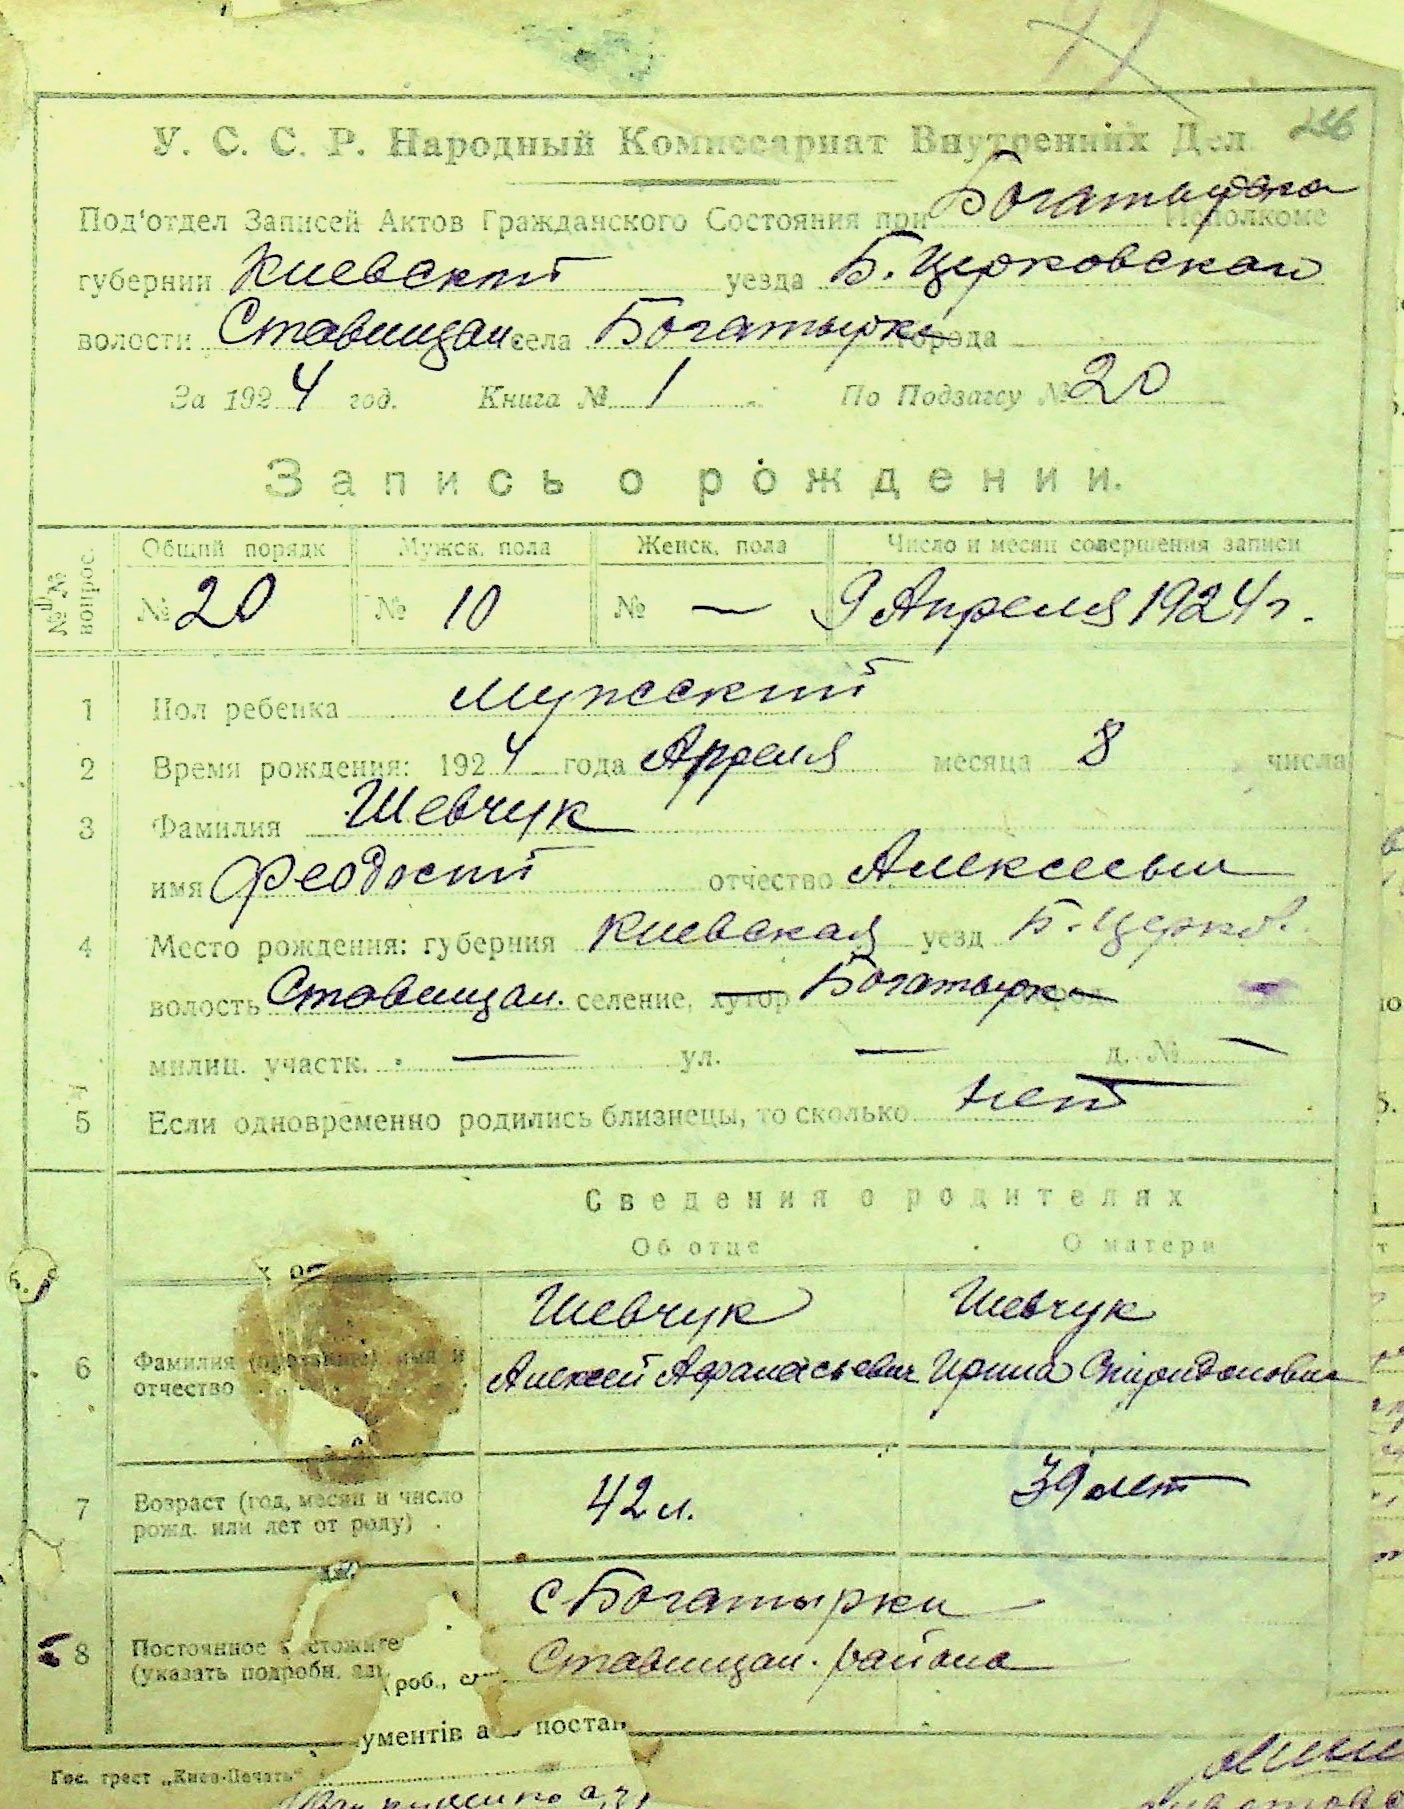 246
У. С. С. Р. Народный Комиссариат Внутренних Дел.
Под'отдел Записей Актов Гражданского Состояния при Исполкоме
губернии Киевской уезда Б. Церковскаго
волости Ставищан. села Богатырки города
За 1924 год. Книга № 1 По Подзагсу № 20
Запись о рождении.
№№ вопрос. Общий порядк Мужск. пола Женск. пола Число и месяц совершения записи
№ 20 № 10 № — 9 Апреля 1924 г.
1 Пол ребенка мужеский
2 Время рождения: 1924 года Апреля месяца 8 числа
3 Фамилия Шевчук
имя Феодосий отчество Алексеевич
4 Место рождения: губерния Киевская уезд Б. Церков.
волость Ставищан. селение, хутор Богатырка
милиц. участк. — ул. — д. № —
5 Если одновременно родились близнецы, то сколько нет
Сведения о родителях
Об отце О матери
Шевчук Шевчук
6 Фамилия (прозвище) имя и отчество Алексей Афанасьевич Ирина Спиридоновна
7 Возраст (год, месяц и число рожд. или лет от роду) 42 л. 39 лет
с Богатырки
8 Постоянное
(указать подробн.
Ставищан. района
роб.,
ументів постан
Гос. трест „Киев-Печать"